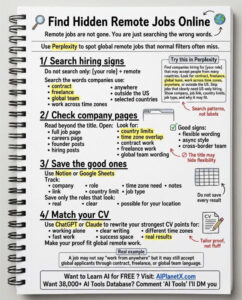 Find Hidden Remote Jobs Online
Remote jobs are not gone. You are just searching the wrong words.
Use Perplexity to spot global remote jobs that normal filters often miss.
1/ Search hiring signs
Do not search only: [your role] + remote
Search the words companies use:
• contract
• freelance
• global team
• work across time zones
• anywhere
• outside the US
• selected countries
Try this in Perplexity
Find companies hiring for [your role]
that may accept people from
many countries. Look for contract, freelance,
global team, work across time zones,
anywhere, or outside the US. Skip
jobs that clearly need US-only hiring.
Show company, job link, country limits,
job type, and why it may fit.
Search patterns,
not labels
2/ Check company pages
Read beyond the title. Open:
• full job page
• careers page
• founder posts
• hiring posts
Look for:
• country limits
• time zone overlap
• contract work
• freelance work
• global team wording
Good signs:
• flexible wording
• async style
• cross-border team
The title may
hide flexibility
3/ Save the good ones
Use Notion or Google Sheets
Track:
• company
• link
• role
• country limit
• time zone need
• job type
• notes
• date
Save only the roles that look:
• real
• clear
• possible for your location
Do not save
every result
4/ Match your CV
Use ChatGPT or Claude to rewrite your strongest CV points for:
• working alone
• fast work
• clear writing
• success space
• different time zones
• real results
Make your proof fit global remote work.
CV
Tailor proof,
not fluff
Real example
A job may not say "work from anywhere" but it may still accept
global applicants through contract, freelance, or global team language.
Want to Learn AI for FREE ? Visit: AiPlanetX.com
Want 38,000+ AI Tools Database? Comment 'AI Tools' I'll DM you